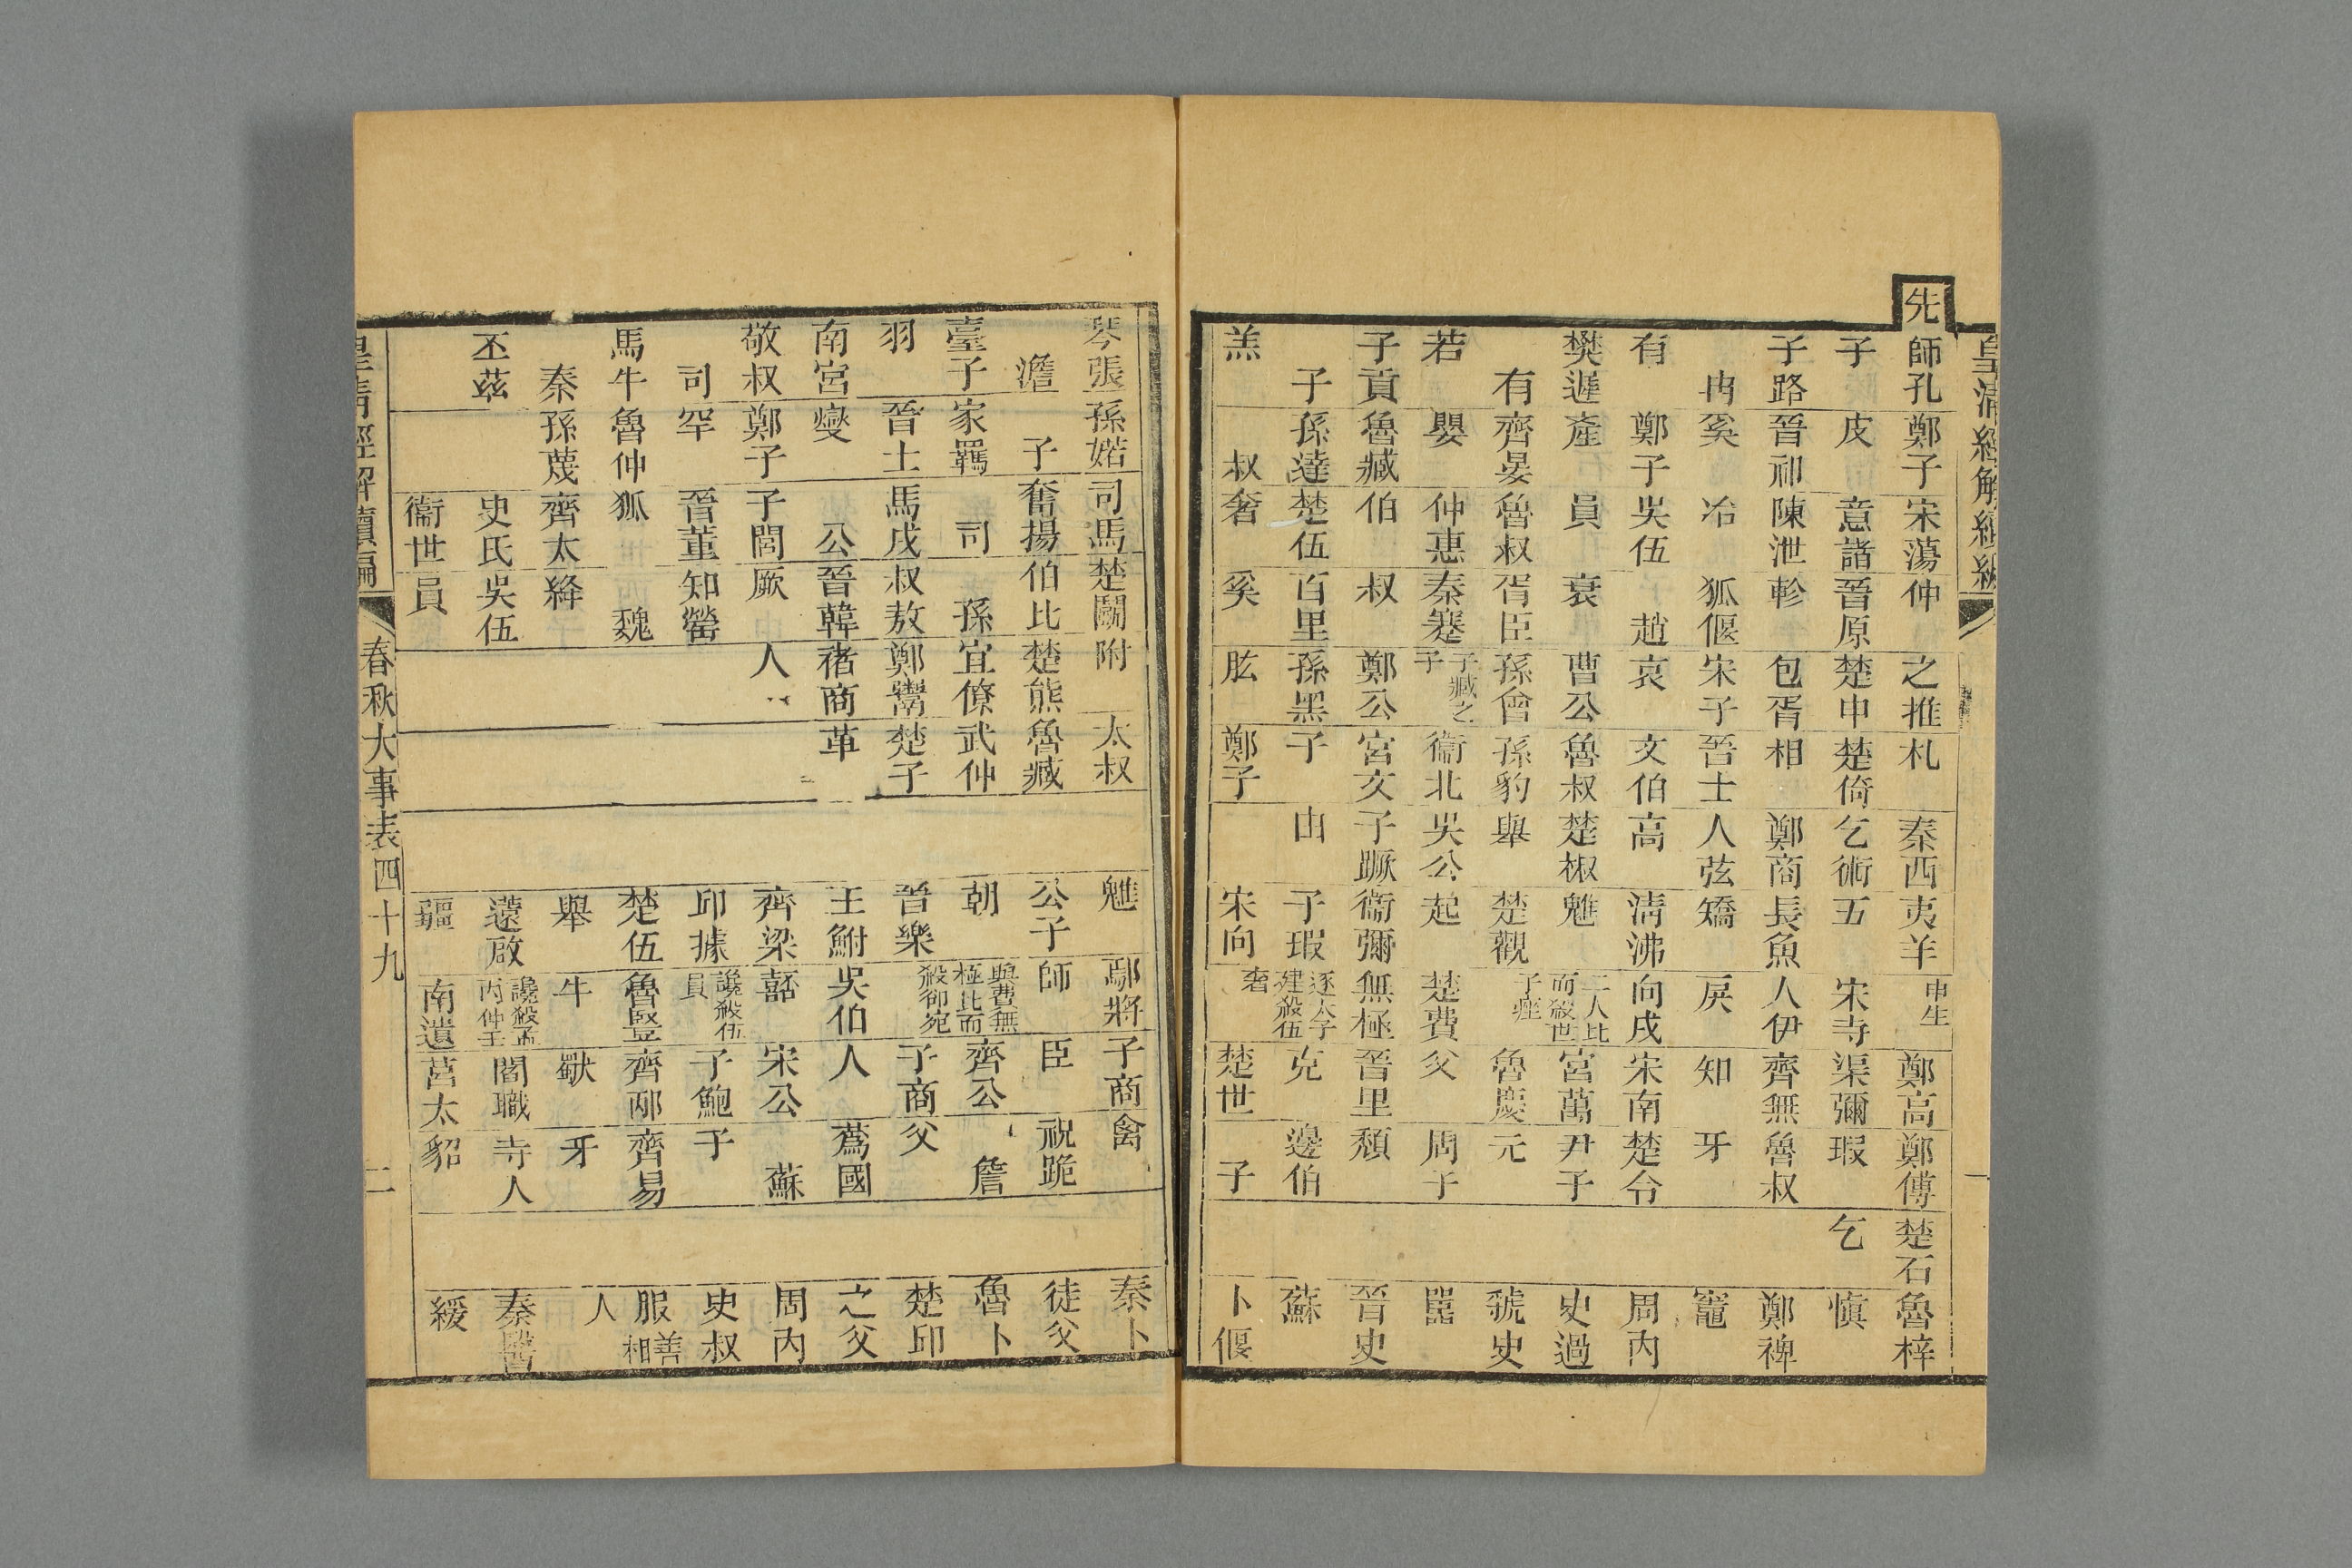 皇清經解續編 一
先師孔 鄭子 宋蕩 仲 之推 札 秦西 夷羊 申生 鄭高 鄭傅 楚石 魯梓
子 皮 意諸 晉原 楚申 楚倚 乞術 五 宋寺 渠彌 瑕 乞 愼
子路 晉祁 陳泄 軫 包胥 相 鄭商 長魚 人伊 齊無 魯叔 鄭裨
冉 奚 冶 狐偃 宋子 晉士 人弦 矯 戾 知 牙 竈
有 鄭子 吳伍 趙 哀 文伯 高 淸沸 向戌 宋南 楚令 周內
樊遲 產 員 衰 曹公 魯叔 楚椒 魋 二人比而殺世 宮萬 尹子 史過
有 齊晏 魯叔 胥臣 孫會 孫豹 舉 楚觀 子痤 魯慶 元 虢史
若 嬰 仲惠 秦蹇 子臧之子 衞北 吳公 起 楚費 父 周子 嚚
子貢 魯臧 伯 叔 鄭公 宮文 子蹶 衞彌 無極 晉里 頹 晉史
子 孫達 楚伍 百里 孫黑 子 由 子瑕 逐太子建殺伍 克 邊伯 蘇
羔 叔 奢 奚 肱 鄭子 宋向 奢 楚世 子 卜偃
琴張 孫婼 司馬 楚鬭 附 太叔 魋 鄢將 子商 禽 秦卜
澹 子 奮揚 伯比 楚熊 魯臧 公子 師 臣 祝跪 徒父
臺子 家羈 司 孫 宜僚 武仲 朝 與費無極比而 齊公 詹 魯卜
羽 晉士 馬戌 叔敖 鄭鬻 楚子 晉樂 殺卻宛 子商 父 楚邱
南宮 燮 公 晉韓 褚商 革 王鮒 吳伯 人 蒍國 之父
敬叔 鄭子 子閭 厥 人 齊梁 嚭 宋公 蘇 周內
司 罕 晉董 知罃 邱據 讒殺伍員 子鮑 子 史叔
馬牛 魯仲 狐 魏 楚伍 魯豎 齊邴 齊易 服善相
秦 孫蔑 齊太 絳 舉 牛 歜 牙 人
丕茲 史氏 吳伍 薳啟 讒殺孟丙仲壬 閻職 寺人 秦醫
衞世 員 疆 南遺 莒太 貂 緩
皇淸經解續編 春秋大事表四十九 二